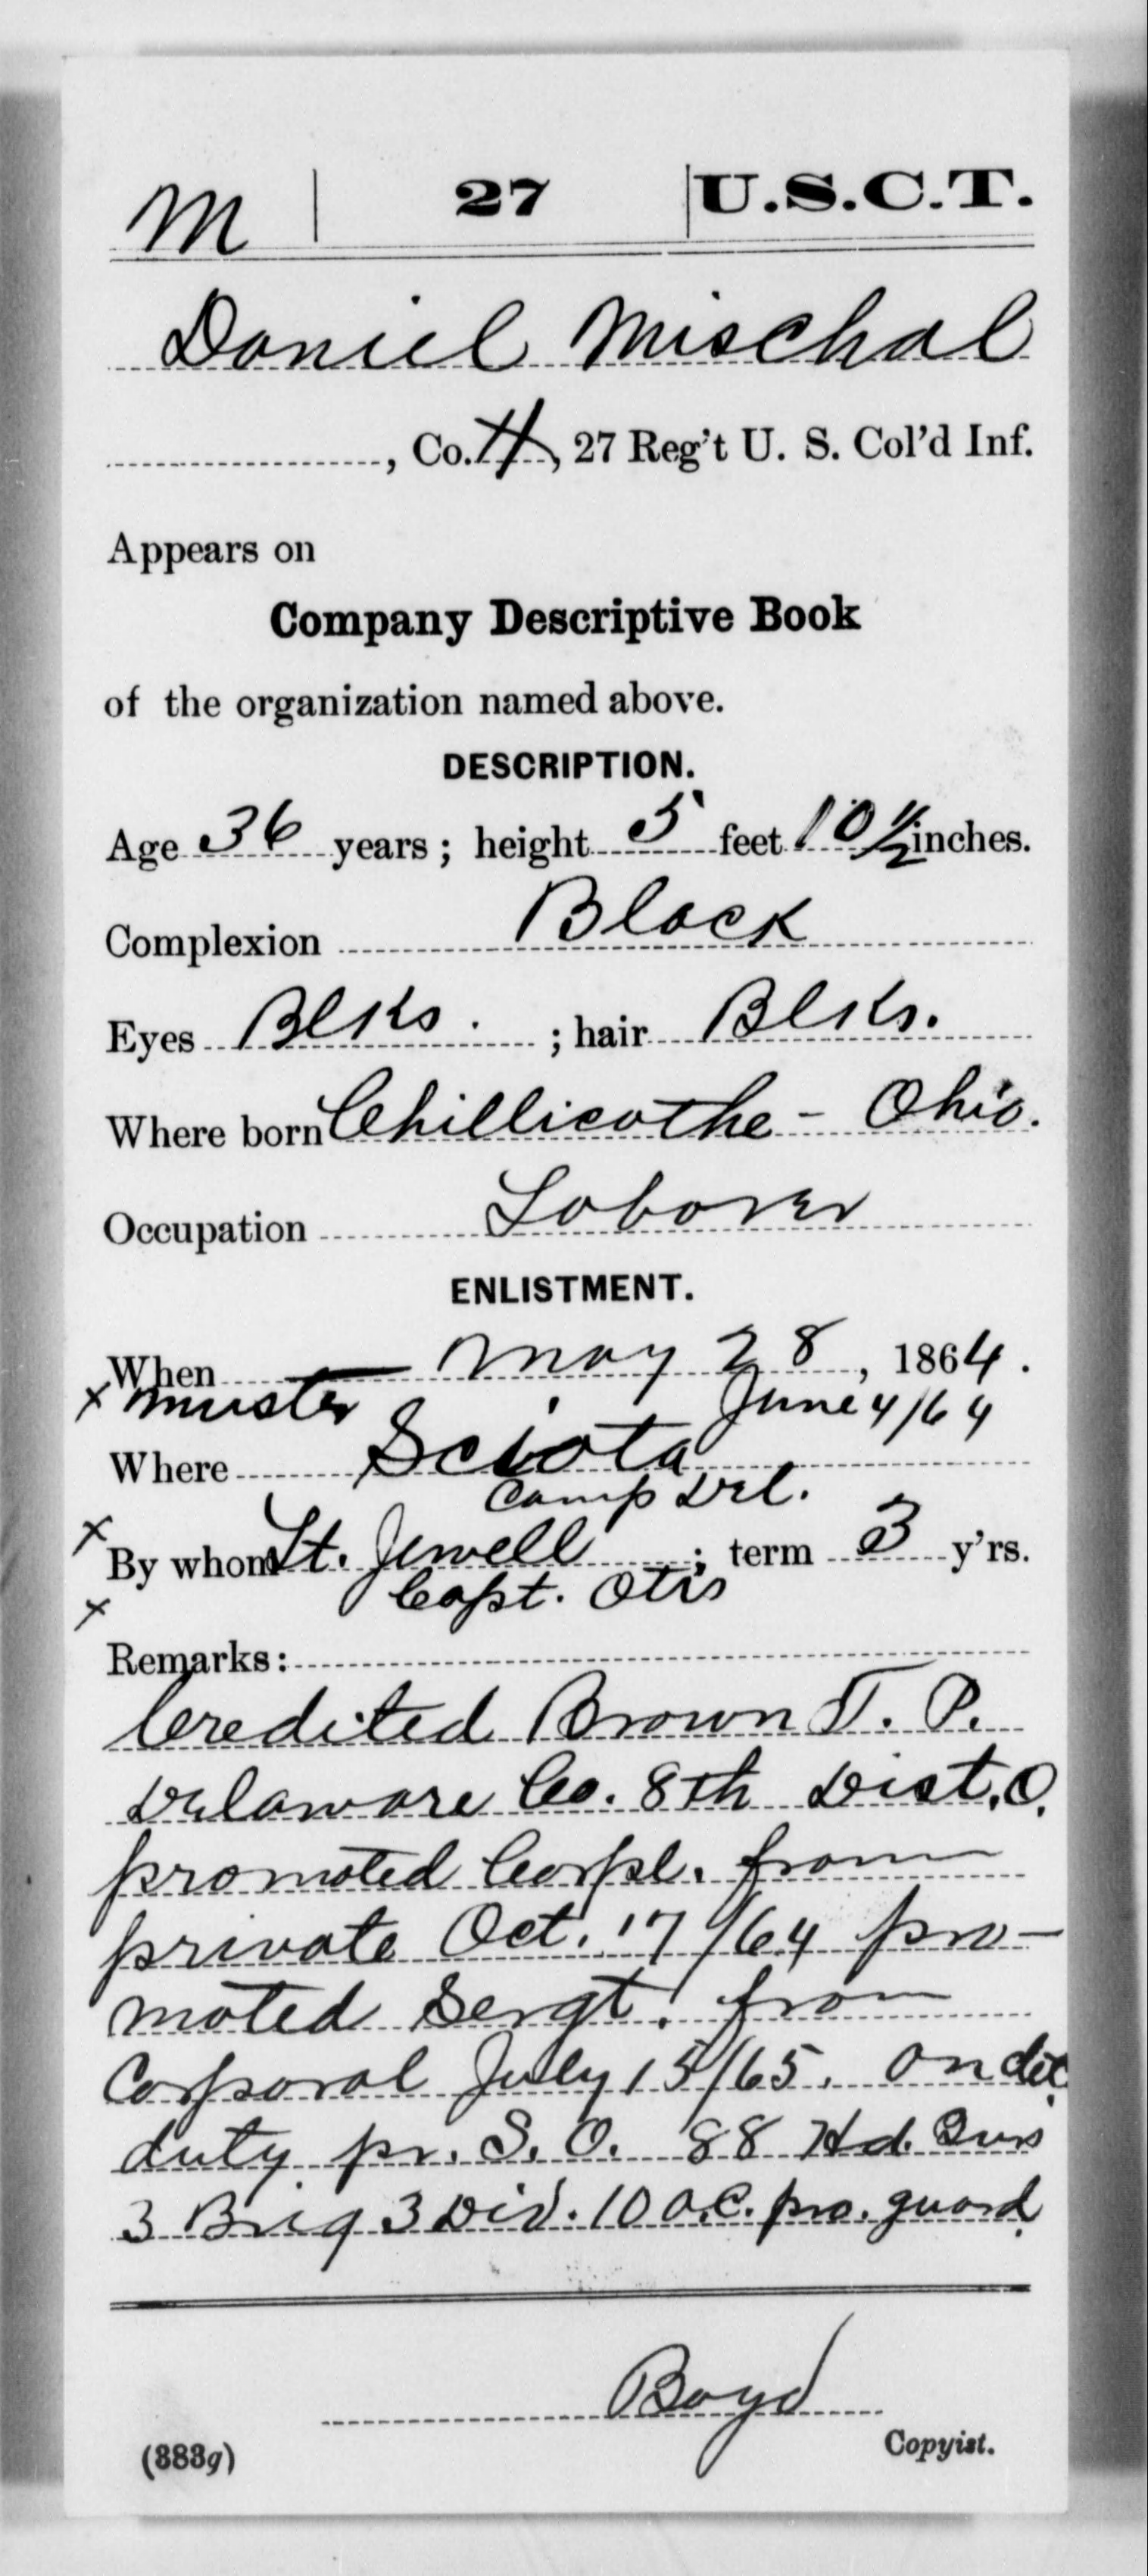 M | 27 | U.S.C.T.
Daniel Mischal
, Co. H, 27 Reg't U. S. Col'd Inf.
Appears on
Company Descriptive Book
of the organization named above.
DESCRIPTION.
Age 36 years; height 5 feet 10 1/2 inches.
Complexion Black
Eyes Blks. ; hair Blks.
Where born Chillicothe - Ohio.
Occupation Laborer
ENLISTMENT.
When May 28, 1864.
x muster June 4/64
Where Sciota
Camp Del.
x By whom Lt. Jewell ; term 3 y'rs.
x Capt. Otis
Remarks:
Credited Brown T. P.
Delaware Co. 8th Dist. O.
promoted Corpl. from
private Oct. 17/64 pro-
moted Sergt. from
Corporal July 15/65. On det.
duty pr. S. O. 88 Hd. Qrs
3 Brig 3 Div. 10 A.C. pro. guard.
Boyd
Copyist.
(383g)